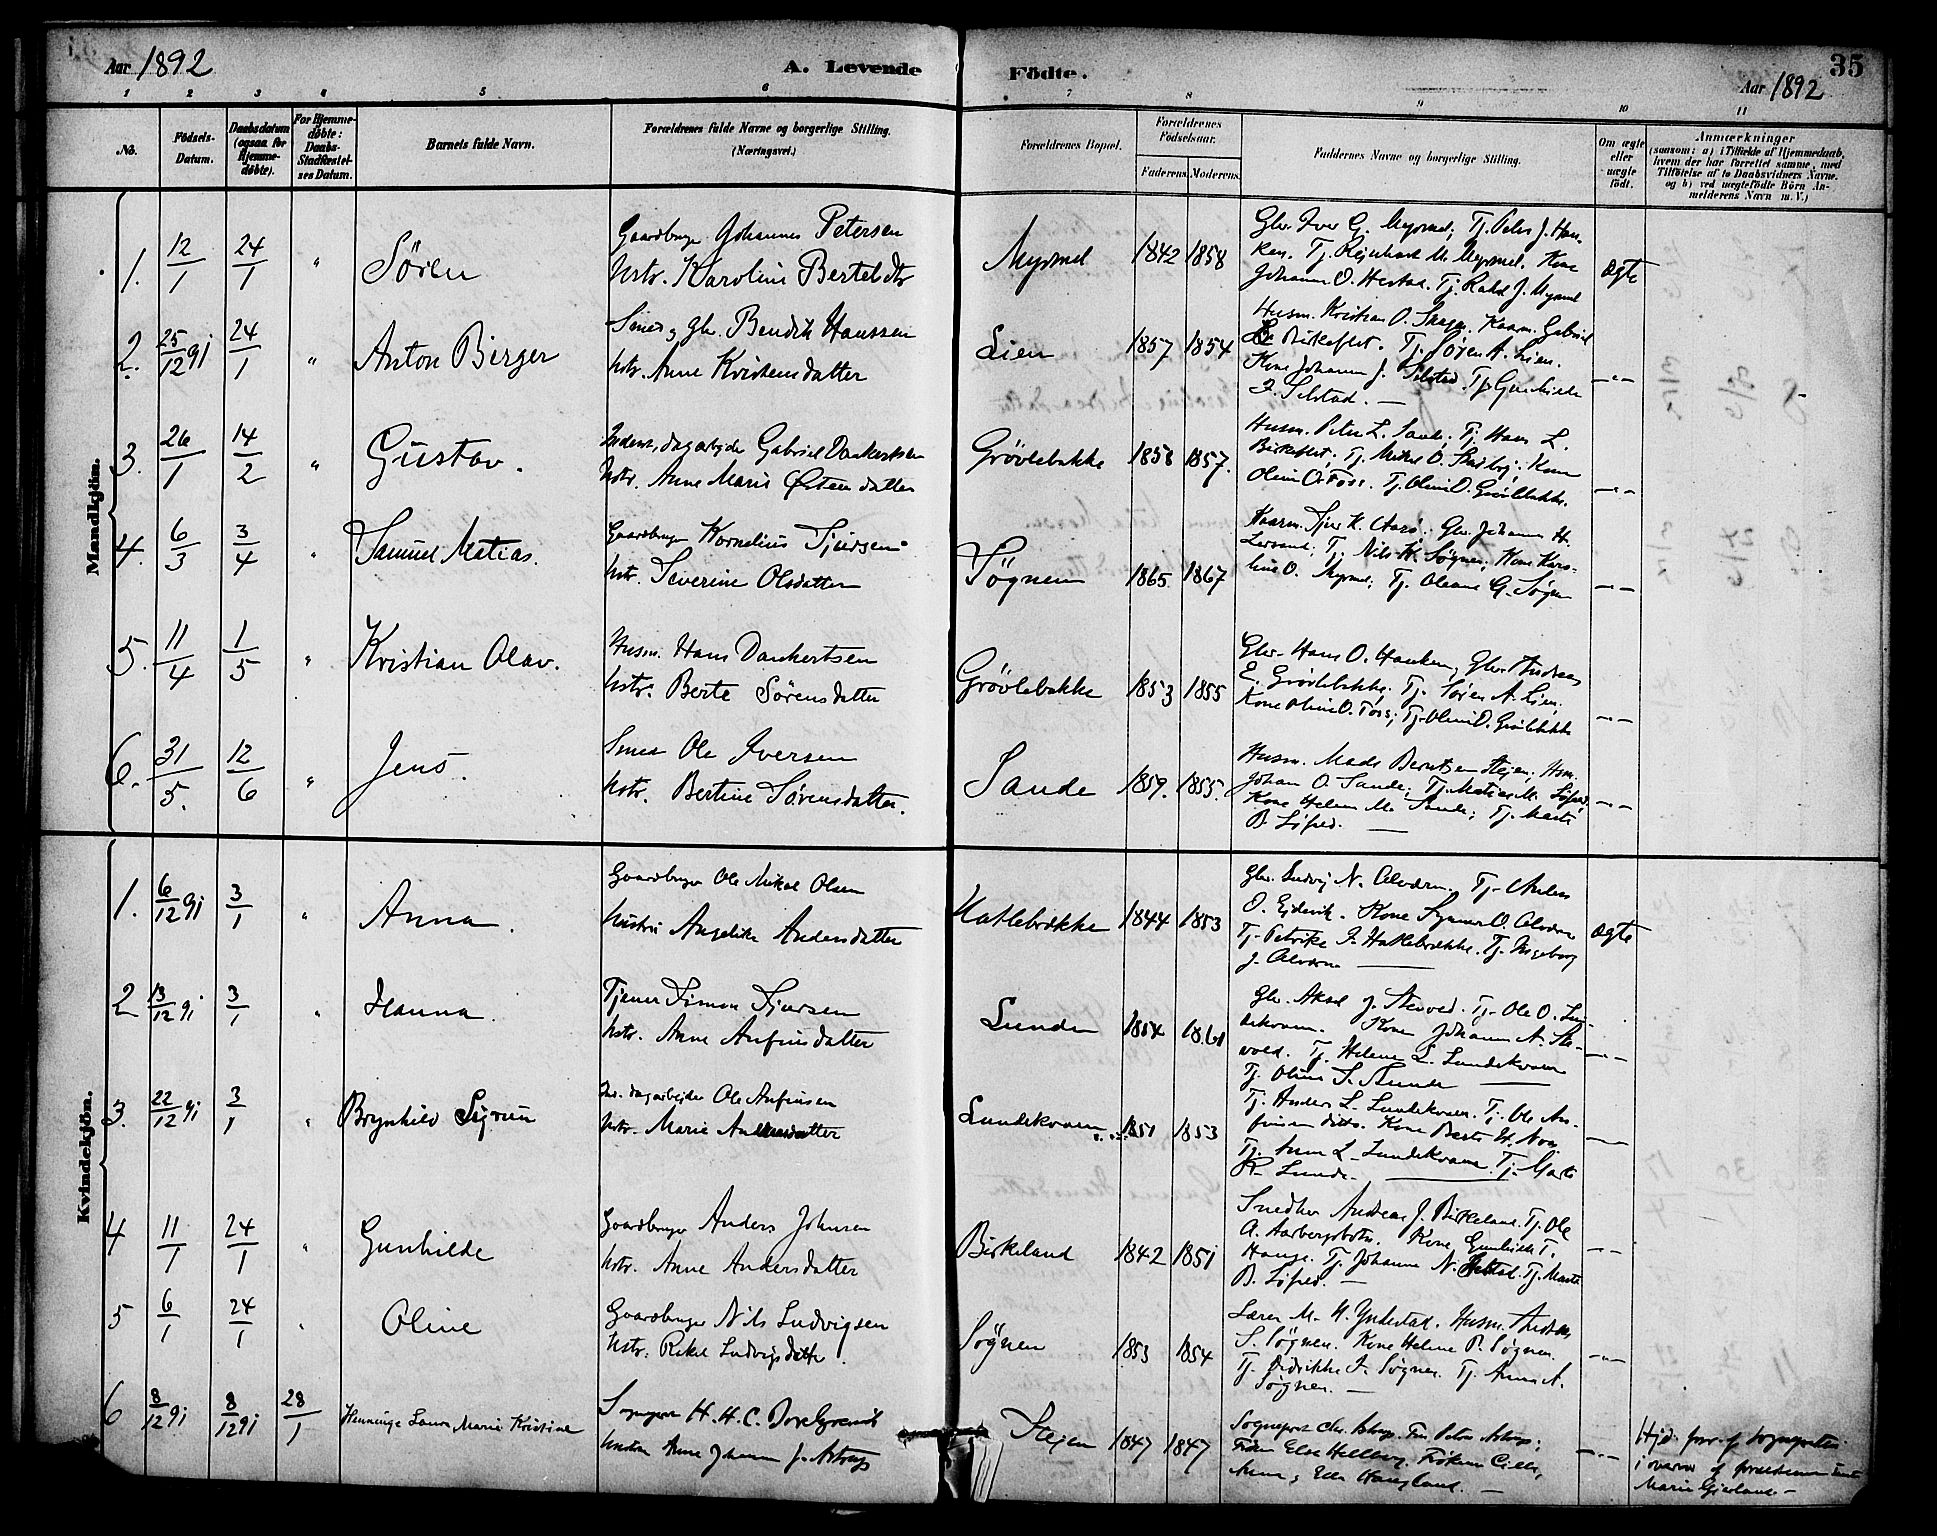 Aar 1892
A. Levende
Födte.
Aar 1892
35
1 2 3 4 5 6 7 8 9 10 11
No.
Födsels-
Datum.
Daabsdatum
(ogsaa for
Hjemme-
døbte).
For Hjemme-
døbte:
Daabs-
Stadfæstel-
ses Datum.
Barnets fulde Navn.
Forældrenes fulde Navne og borgerlige Stilling.
(Næringsvei.)
Forældrenes Bopæl.
Forældrenes
Födselsaar.
Faderens. Moderens.
Faddernes Navne og borgerlige Stilling.
Om ægte
eller
uægte
födt.
Anmærkninger
(saasom: a) i Tilfælde af Hjemmedaab,
hvem der har forrettet samme, med
Tilföielse af to Daabsvidners Navne,
og b) ved uægtefödte Börn An-
melderens Navn m. V.)
Mandkjön.
1. 12/1 24/1 " Sören
Gaardbruger Johannes Petersen
Hstr. Karoline Bertelsdtr
Myrmel 1842 1858
Gbr. Iver G. Myrmel; Tj. Peter J. Hau-
ken. Tj. Reinhard M. Myrmel. Kone
Johanne O. Hestad. Tj. Rakel J. Myrmel
ægte
2. 25/12 91 24/1 " Anton Birger
Smed og Gbr. Bendik Hanssen
Hstr. Anne Kristensdatter
Lien 1857 1854
Husm. Kristian O. Kaarm. Gabriel
Birkeflet. Tj. Søren A. Lien.
Kone Johanne J. Selstad. Tj. Gunhilde
J. Selstad. —
— " —
3. 26/1 14/2 " Gustav.
Inderst, dagarbejder Gabriel Dankertsen
Hstr. Anne Marie Østensdatter
Grövlebakke 1858 1857.
Husm. Peter L. Sande; Tj. Hans L.
Birkeflet; Tj. Mikel O. Kone
Oline O. Foss. Tj. Oline D. Grövlebakke.
— " —
4. 6/3 3/4 " Samuel Matias.
Gaardbruger Kornelius Sjursen
Hstr. Severine Olsdatter
Søgnen 1865. 1867
Kaarm. Sjur K. Gbr. Johannes H.
Tj. Nils K. Søgnen; Kone Karo-
line O. Myrmel; Tj. Oleane G. Søgnen
— " —
5. 11/4 1/5 " Kristian Olav.
Husm. Hans Dankertsen
Hstr. Berte Sörensdatter
Grövlebakke 1853 1855
Gbr. Hans O. Hauken; Gbr. Andreas
E. Grövlebakke. Tj. Søren A. Lien.
Kone Oline O. Foss; Tj. Oline D. Grövlebakke
— " —
6. 31/5. 12/6 " Jens.
Smed Ole Iversen
Hstr. Bertine Sörensdatter.
Sande 1859. 1855.
Husm. Mads Berntsen Stejen; Hsm.
Johan O. Sande; Tj. Matias M. Løfred,
Kone Helene M. Sande; Tj. Marte
B. Løfred. —
— " —
Kvindekjön.
1. 6/12 91 3/1 " Anna.
Gaardbruger Ole Mikal Olsen
Hustru Angelike Andersdatter
Hatlebrække 1844 1853
Gbr. Ludvig N. Alværn. Tj. Anders
O. Ejdevik. Kone O. Alværn
Tj. Petrike J. Hatlebrække. Tj. Ingeborg
J. Alværn —
ægte
2 13/12 91 3/1 " Hanna.
Tjener Simon Sjursen
Hstr. Anne Anfinsdatter
Lunden 1854 1861
Gbr. Aksel J. Stevold. Tj. Ole O. Lun-
dekvam. Kone Johanne N. Ste-
vold. Tj. Helene L. Lundekvam
Tj. Oline S. Lunde —
— " —
3. 22/12 91 3/1 " Brynhild Sigrun
Ind. dagarbejder Ole Anfinsen
Hstr. Marie Andersdatter
Lundekvam 1851 1853
Tj. Anders L. Lundekvam. Tj. Ole An-
finsen ditto. Kone Berte H.
Tj. Anne L. Lundekvam. Tj. Marte
R. Lunde. —
— " —
4 11/1 24/1 " Gunhilde
Gaardbruger Anders Johnsen
Hstr. Anne Andersdatter
Birkeland 1842 1851
Andreas J. Birkeland. Tj. Ole
A. Aarbergsbotn. Kone Gunhilde T.
Hauge. Tj. Johanne N. Tj. Marte
B. Løfred. —
— " —
5 6/1 24/1 " Oline
Gaardbruger Nils Ludvigsen
Hstr. Rakel Ludvigsdatter.
Søgnen 1853 1854
Lærer M. H. Yndestad. Husm. Anders
S. Søgnen. Kone Helene P. Søgnen.
Tj. Didrikke J. Søgnen. Tj. Anne A.
Søgnen. —
— " —
6 8/12 91 8/12 91 28/1 Henninge Laura Marie Kristine
Sogneprest H. H. C.
Hustru Anne Johanne J. Astrup
Stejen 1847 1847
Sogneprest Chr. Astrup. Fru Petra Astrup;
Frøken Elise Hellberg, Frøken Cille,
Anna og Ella Haugland. —
— " —
Hjd. forr. af sognepresten
i overvær af forældrene samt
Marie Gjerland —